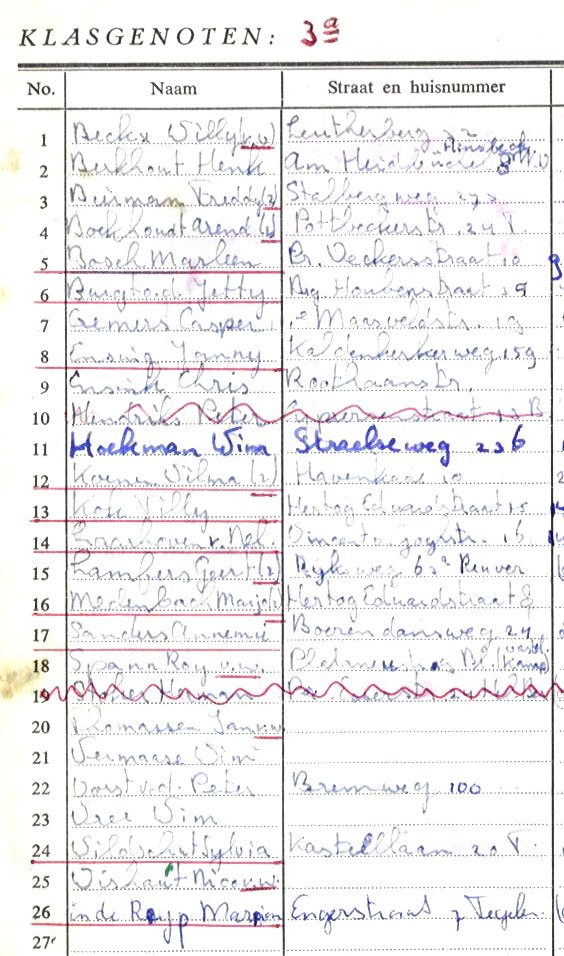 KLASGENOTEN: 3a
No. Naam Straat en huisnummer
1 Beckx Willy (v.w) Leutherberg 72
2 Berkhout Henk Am Heidbüchel Hinsbeck
3 Buismann Freddy (2) Stalbergweg 272
4 Bockhoudt Arend (2) Pottbeckerstr. 24 T
5 Bosch Marleen Pr. Beckersstraat 10
6 Burg v.d. Jetty Mg Houbenstraat 19
7 Gemers Casper Maasveldstr. 19
8 Ensing Janny Kaldenkerkerweg 159
9 Ensink Chris Roothaanstr.
10 Hendriks Peter
11 Hoekman Wim Straelseweg 236
12 Koenen Wilma (2) Havenkade 10
13 Kok Willy Hertog Eduardstraat 15
14 Vincent v Goghstr. 16
15 Lambers Geert (2) Ryksweg 63a Reuver
16 Medenbach Marjo (2) Hertog Eduardstraat 8
17 Sanders Annemie Boerendansweg 24
18 Spann Roy v.w.
19 Herman
20 Thomassen Jan v.w
21 Vermaase Wim
22 Vorst v.d. Peter Bremweg 100
23 Vree Wim
24 Wildschut Sylvia Kastellaan 20 T.
25 Wishaut Nico v.w.
26 in de Rijp Marion Engerstraat 7 Tegelen
27